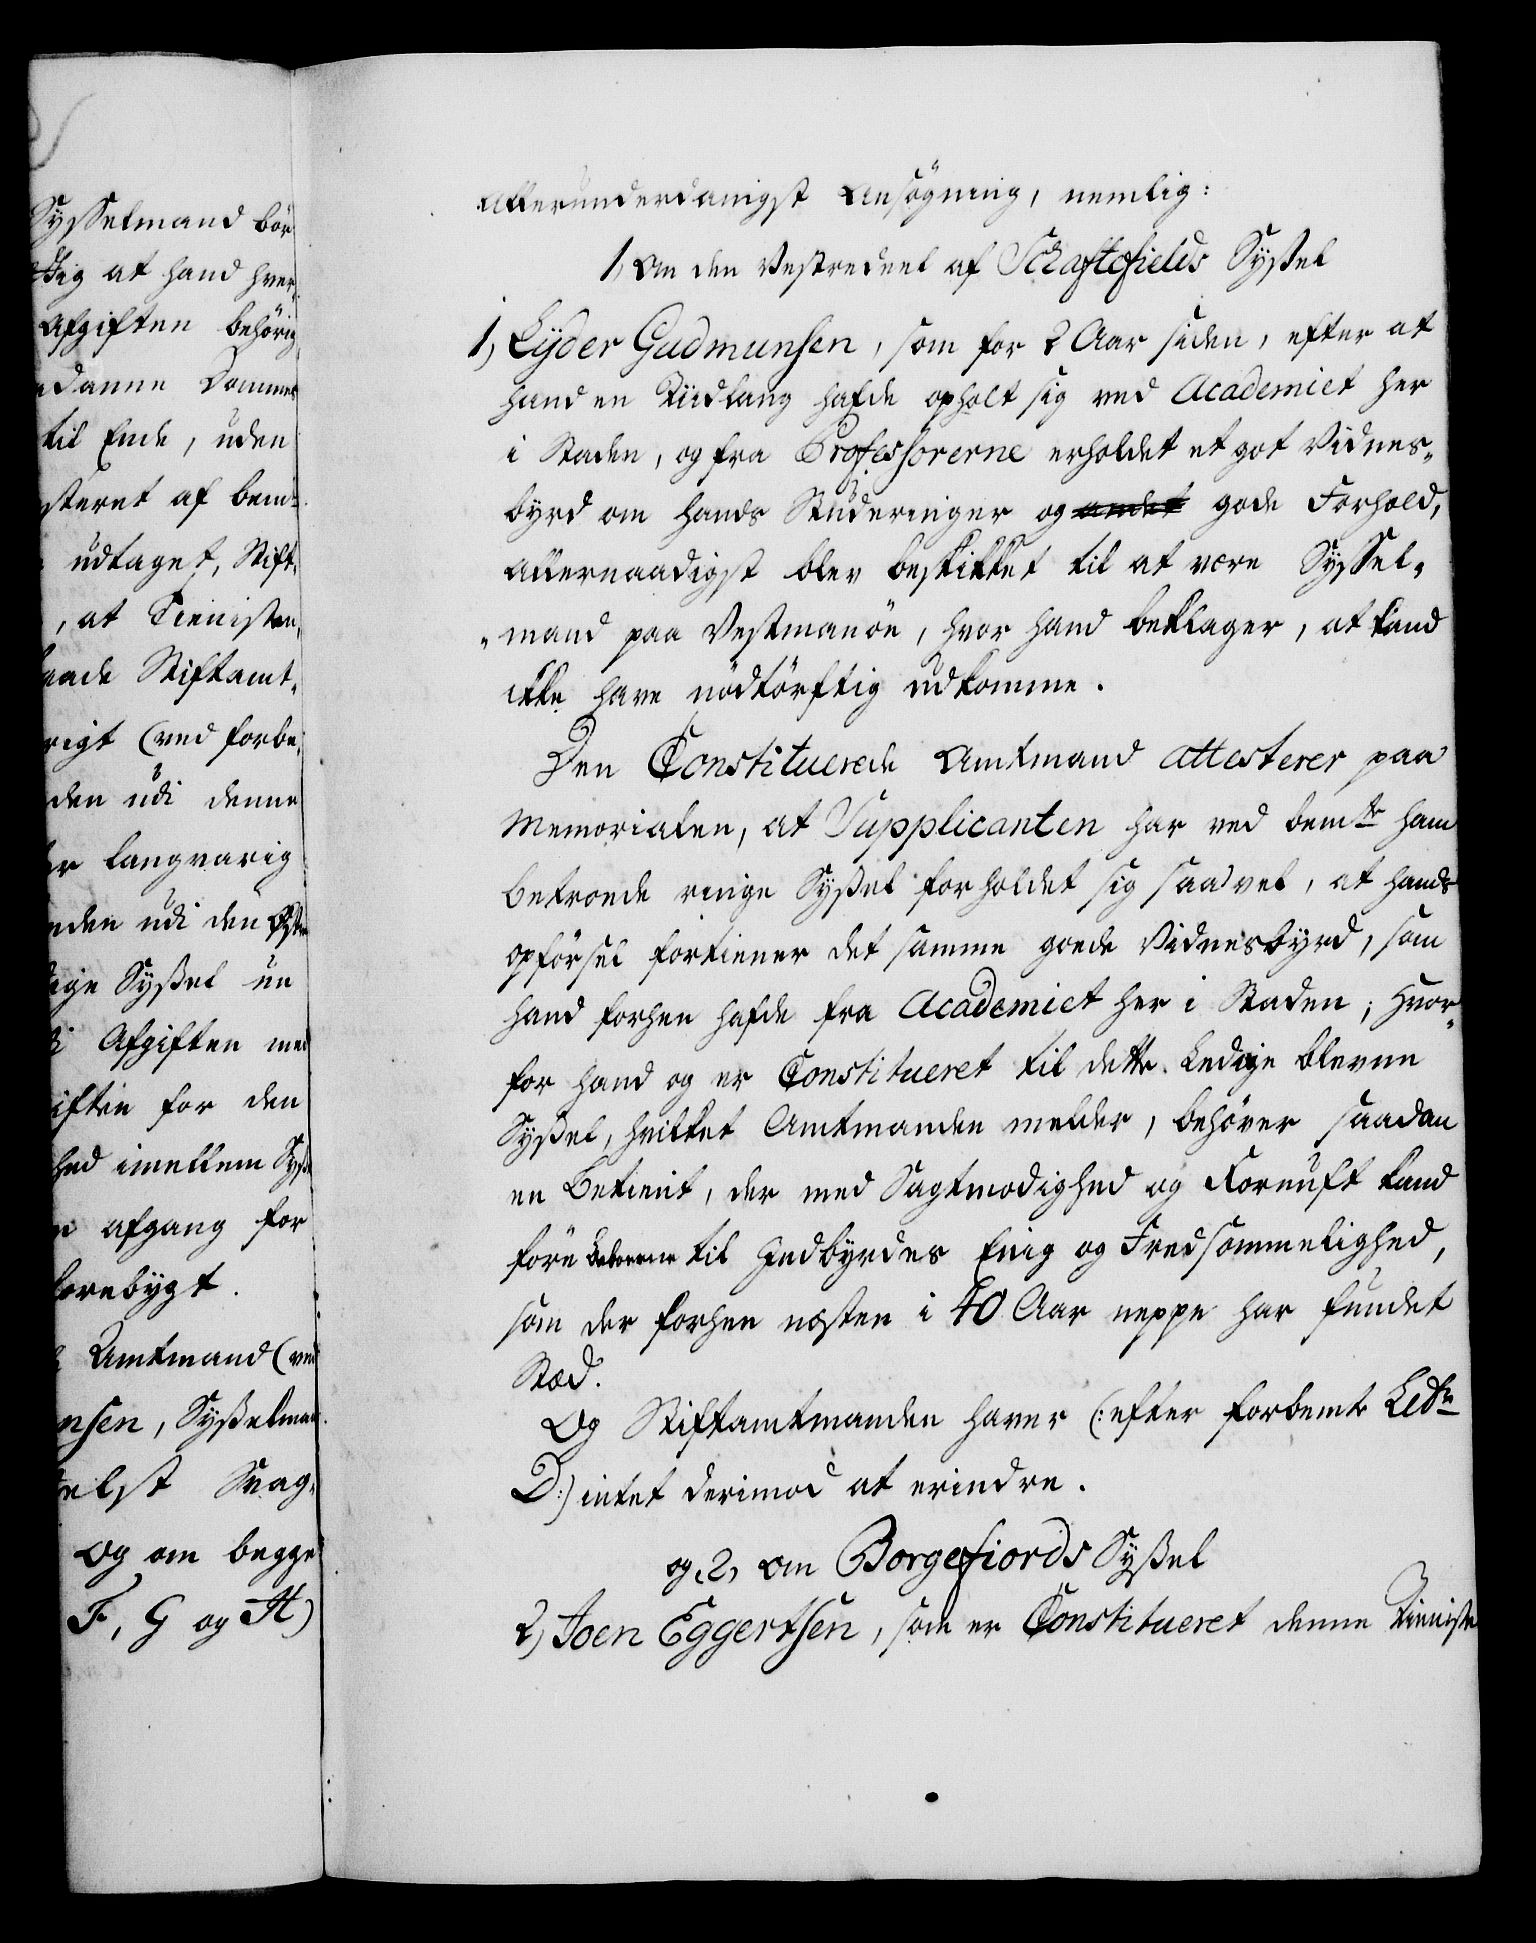 Sysselmand bör
dig at hand hver
Afgiften behörig
danne Dommer
til Ende, uden
steret af bem:
udtaget, Stift-
, at Tienisten,
Stiftamt-
rigt (ved forbe:
den udi denne
langvarig
nden udi den
ige Syßel un
Afgiften med
iften for den
hed imellem Syß
afgang for
forebygt.
Amtmand (ved
nsen, Sysselman
elst Svag-
og om begge
F, G og H)
allerunderdanigst Ansögning, nemlig:
1, om den Vestredeel af Schaftefields Syßel
1, Lyder Gudmunsen, som for 2 Aar siden, efter at
hand en Tiidlang hafde opholt sig ved Academiet her
i Staden, og fra Professorerne erholdet et got Vidnes-
byrd om hands Studeringer og andet gode Forhold,
allernaadigst blev beskikket til at være Syssel-
mand paa Vestmanöe, hvor hand beklager, at kand
ikke have nödtörftig udkomme.
Den Constituerede Amtmand attesterer paa
Memorialen, at Supplicanten har ved bemte ham
betroede ringe Syßel forholdet sig saa vel, at hands
opförsel fortiener det samme goede Vidnesbyrd, som
hand forhen hafde fra Academiet her i Staden; Hvor-
for hand og er Constitueret til dette Ledige blevne
Syßel, hvilket Amtmanden melder, behöver saadan
en Betient, der med Sagtmodighed og Fornuft kand
före Beboerne til Indbyrdes Enig og Fredsommelighed,
som der forhen næsten i 40 Aar neppe har fundet
Stæd.
Og Stiftamtmanden haver (: efter forbemte
D:) intet derimod at erindre.
og, 2, om Borgefiords Syßel
2, Joen Eggertsen, som er Constitueret denne Tieniste